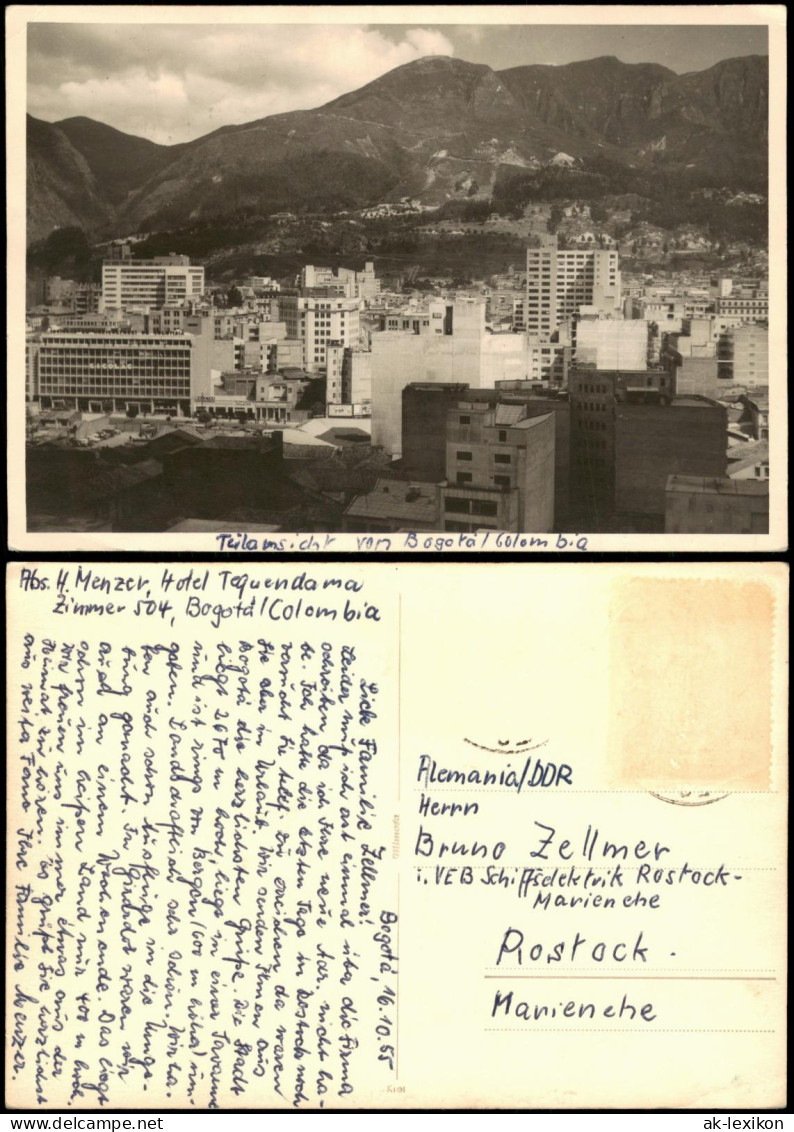 Teilansicht von Bogotá/Colombia
Abs. H. Menzer, Hotel Tequendama
Zimmer 504, Bogotá/Colombia
Bogotá, 16.10.55
Liebe Familie Zellmer!
Leider muß ich erst einmal über die Firma
schreiben, da ich Ihre neue Adr. nicht ha-
be. Ich hatte die letzten Tage in Rostock noch
versucht Sie telef. zu erreichen, da waren
Sie aber in Urlaub. Wir senden Ihnen aus
Bogotá die herzlichsten Grüße. Die Stadt
liegt 2670 m hoch, liegt in einer Savanne
und ist rings von Bergen (100 m höher) um-
geben. Landschaftlich sehr schön. Wir ha-
ben auch schon Ausflüge in die Umge-
bung gemacht. In Girardot waren wir
auch an einem Wochenende. Das liegt
schon im heißen Land nur 400 m hoch.
Wir freuen uns immer etwas aus der
Heimat zu hören. Es grüßt Sie herzlichst
aus weiter Ferne Ihre Familie Menzer.
Alemania/DDR
Herrn
Bruno Zellmer
i. VEB Schiffselektrik Rostock-
Marienehe
Rostock.
Marienehe
ak-lexikon